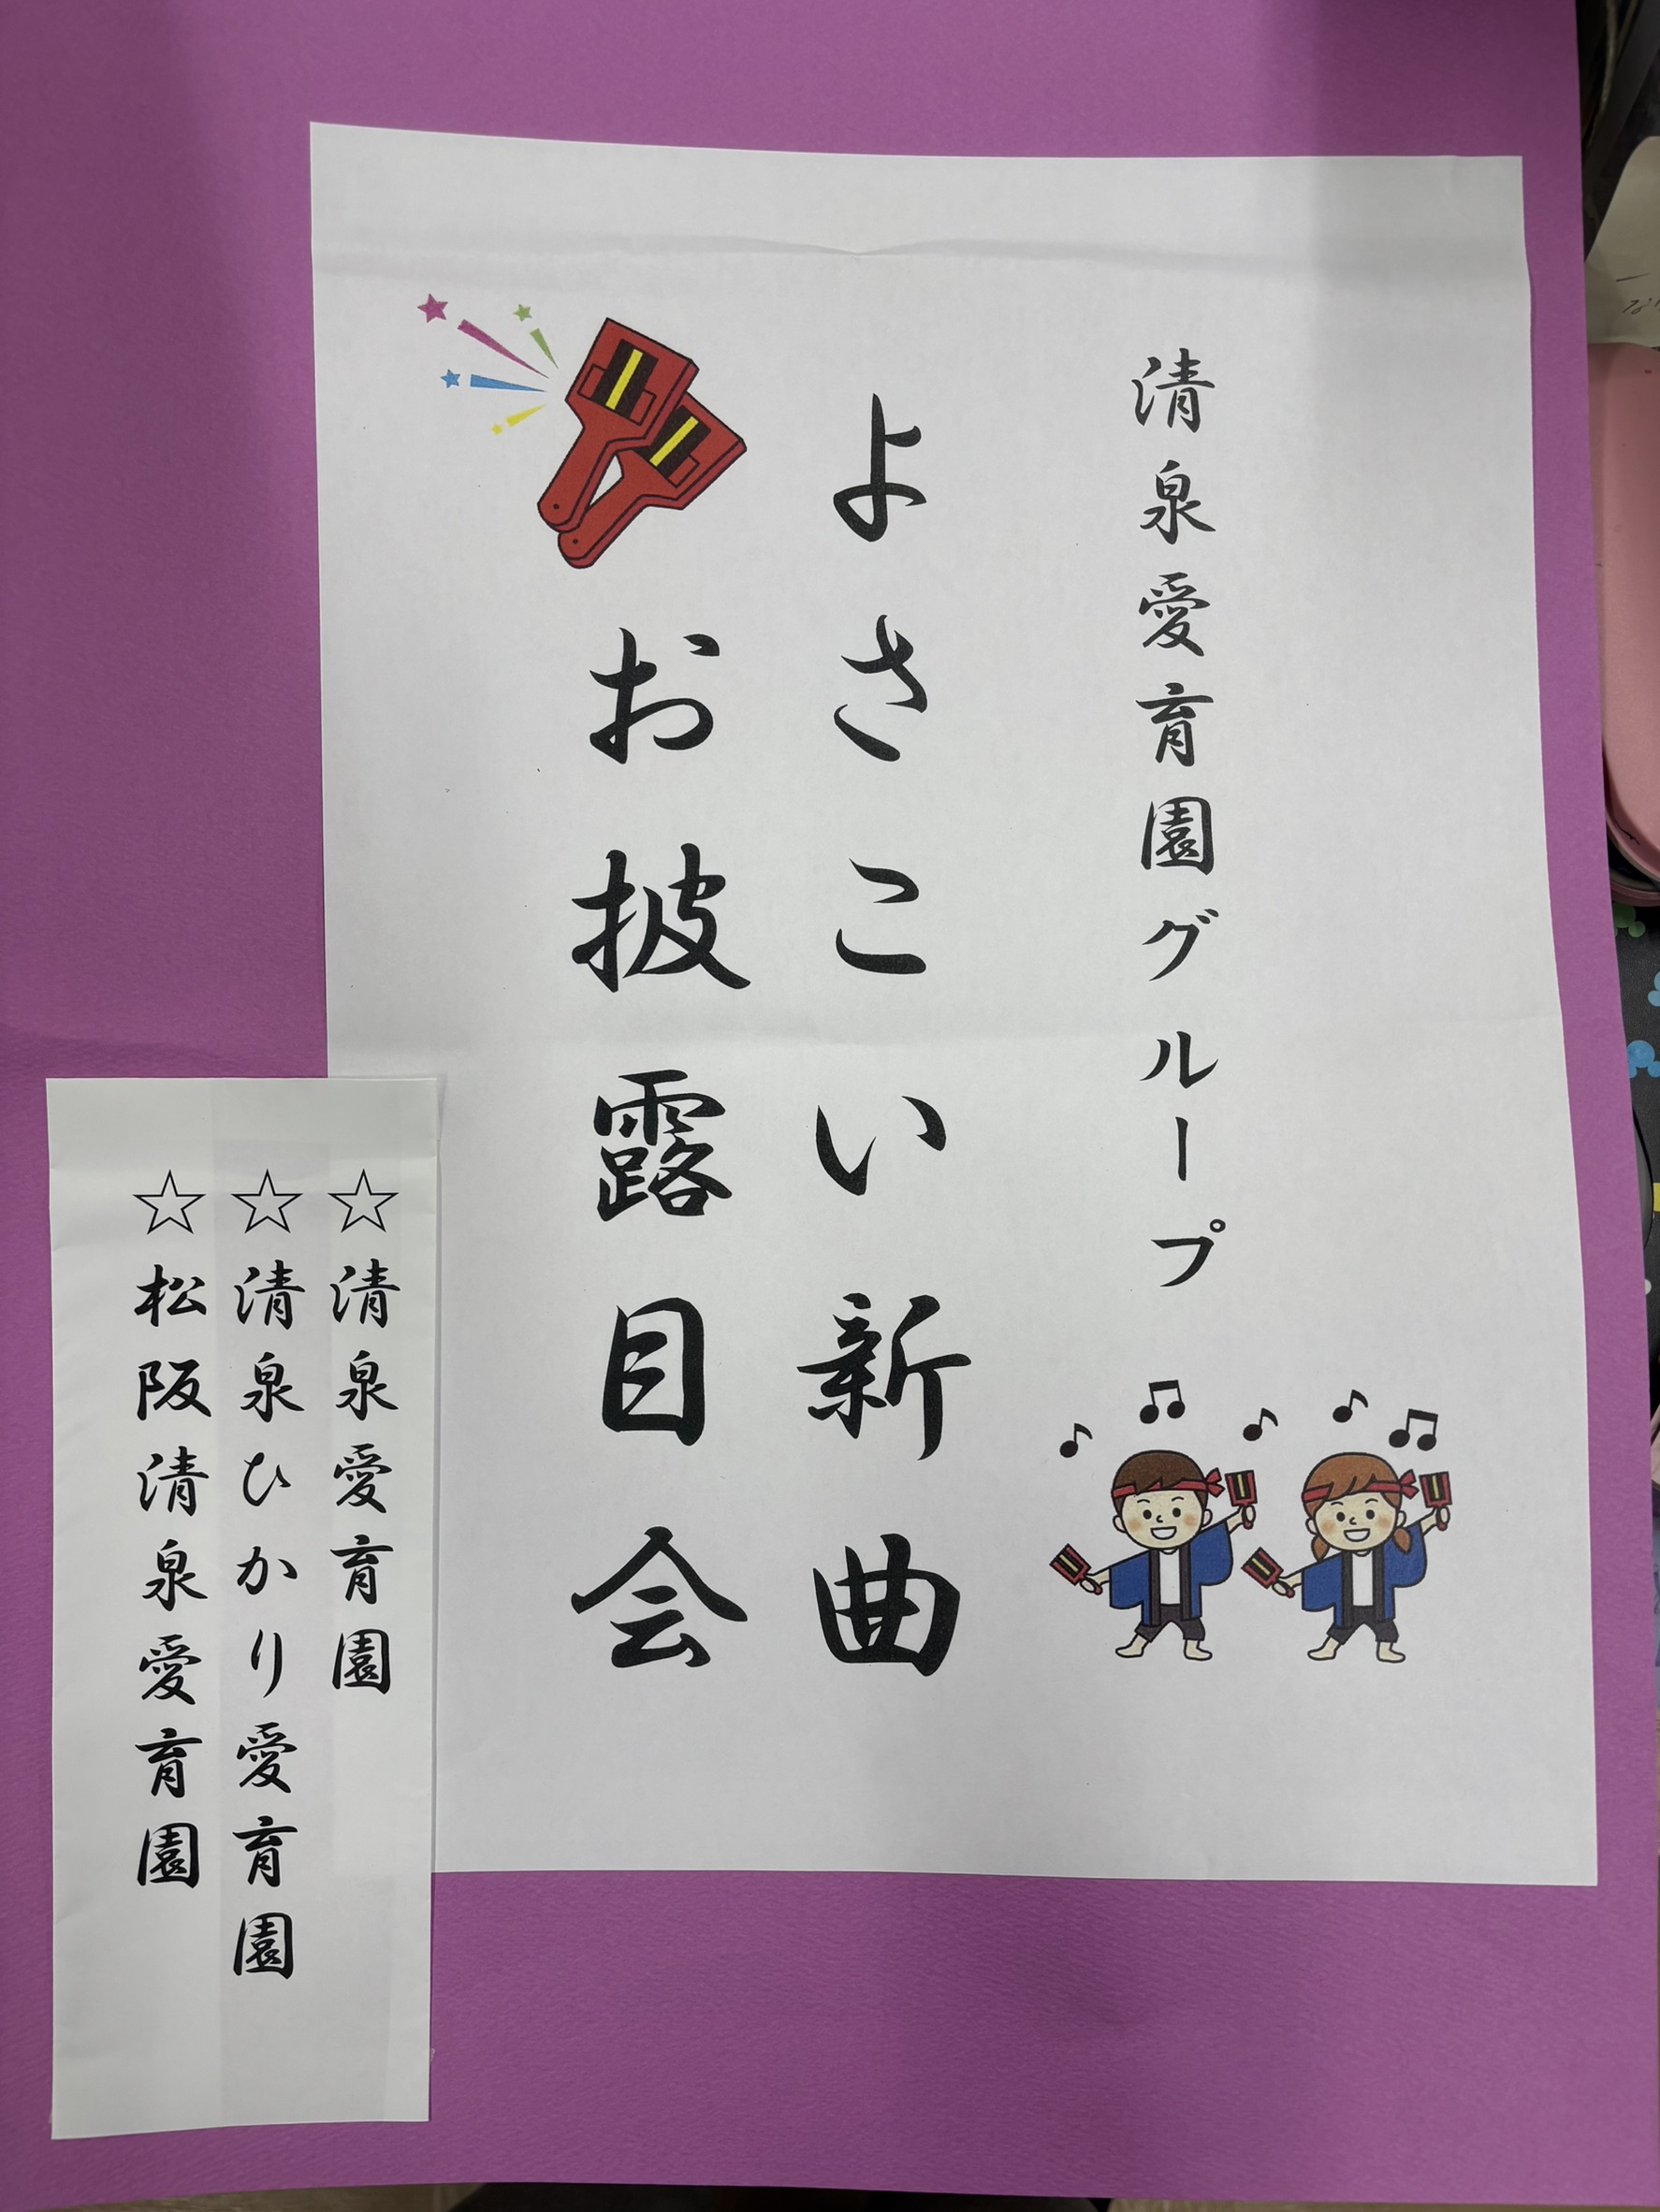 清泉愛育園グループ
よさこい新曲
お披露目会
☆清泉愛育園
☆清泉ひかり愛育園
☆松阪清泉愛育園